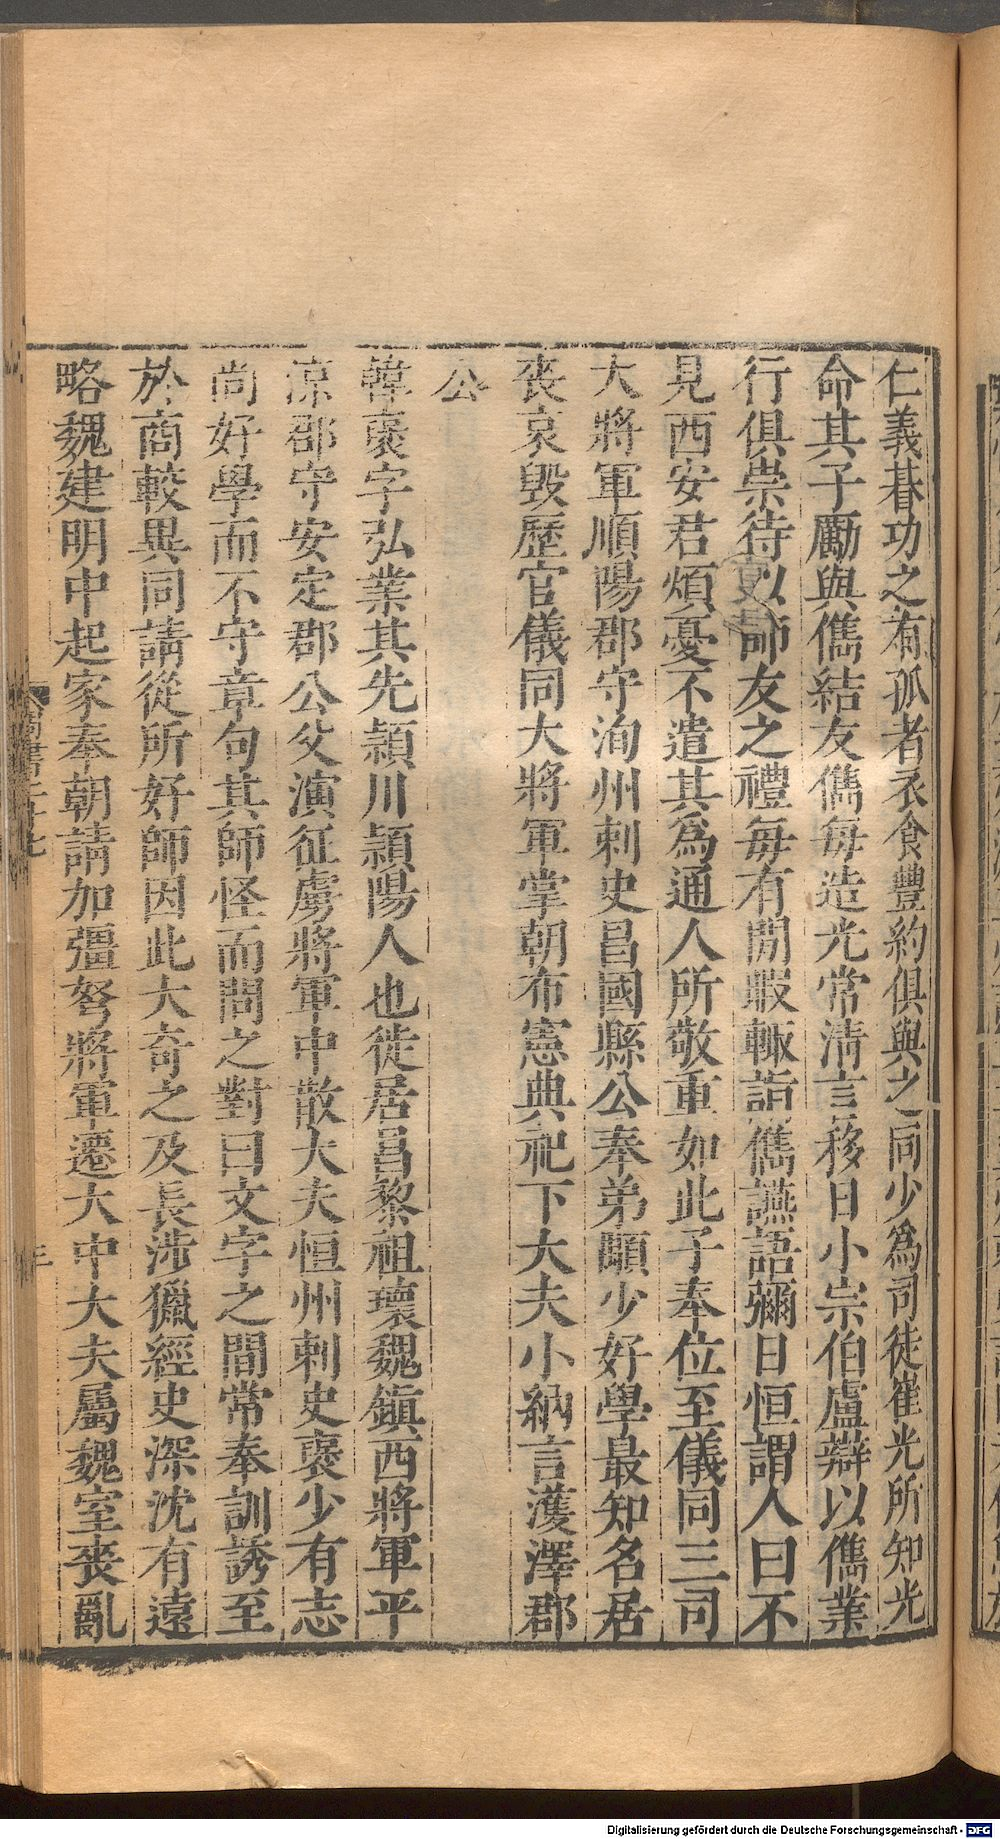 仁義朞功之有孤者衣食豐約俱與之同少爲司徒崔光所知光
命其子勵與儁結友儁每造光常清言移日小宗伯盧辯以儁業
行俱崇待以師友之禮每有閒暇輒詣儁讌語彌日恒謂人曰不
見西安君煩憂不遣其爲通人所敬重如此子奉位至儀同三司
大將軍順陽郡守洵州刺史昌國縣公奉弟顒少好學最知名居
喪哀毀歷官儀同大將軍掌朝布憲典祀下大夫小納言濩澤郡
公
韓襃字弘業其先潁川潁陽人也徙居昌黎祖瓌魏鎮西將軍平
涼郡守安定郡公父演征虜將軍中散大夫恒州刺史襃少有志
尚好學而不守章句其師怪而問之對曰文字之間常奉訓誘至
於商較異同請從所好師因此大奇之及長涉獵經史深沈有遠
略魏建明中起家奉朝請加彊弩將軍遷大中大夫屬魏室喪亂
周書三十七
Digitalisierung gefördert durch die Deutsche Forschungsgemeinschaft - DFG